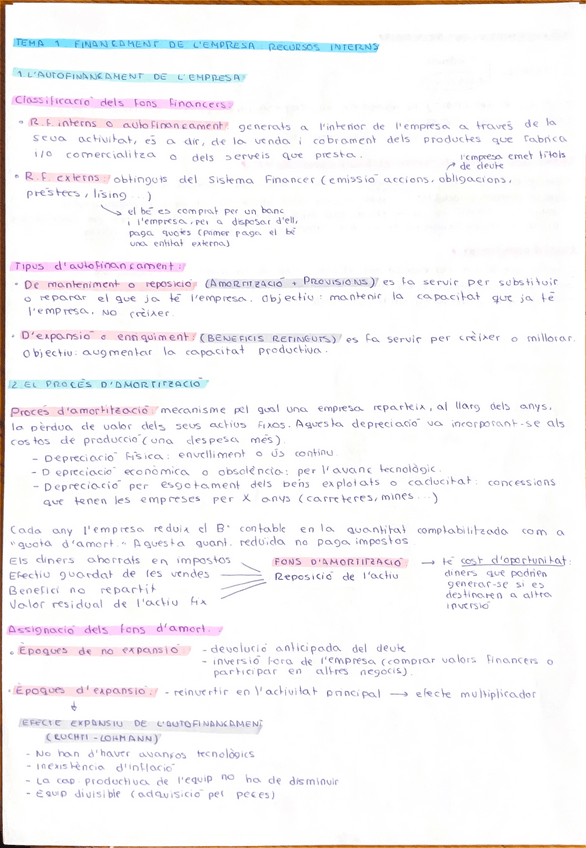 TEMA 1. FINANÇAMENT DE L'EMPRESA: RECURSOS INTERNS
1. L'AUTOFINANÇAMENT DE L'EMPRESA
Classificació dels fons financers:
• R.F. interns o autofinançament: generats a l'interior de l'empresa a través de la
seva activitat, és a dir, de la venda i cobrament dels productes que fabrica
i/o comercialitza o dels serveis que presta.
l'empresa emet títols
de deute
• R.F. externs: obtinguts del Sistema Financer (emissió accions, obligacions,
préstecs, lísing...)
el bé es comprat per un banc
i l'empresa, per a disposar d'ell,
paga quotes (primer paga el bé
una entitat externa)
Tipus d'autofinançament:
• De manteniment o reposició (AMORTITZACIÓ + PROVISIONS) es fa servir per substituir
o reparar el que ja té l'empresa. Objectiu: mantenir la capacitat que ja té
l'empresa, NO créixer.
• D'expansió o enriquiment (BENEFICIS RETINGUTS) es fa servir per créixer o millorar.
Objectiu: augmentar la capacitat productiva.
2. EL PROCÉS D'AMORTITZACIÓ
Procés d'amortització: mecanisme pel qual una empresa reparteix, al llarg dels anys,
la pèrdua de valor dels seus actius fixos. Aquesta depreciació va incorporant-se als
costos de producció (una despesa més).
- Depreciació física: envelliment o ús continu.
- Depreciació econòmica o obsolència: per l'avanç tecnològic.
- Depreciació per esgotament dels béns explotats o caducitat: concessions
que tenen les empreses per X anys (carreteres, mines...)
Cada any l'empresa redueix el Bº contable en la quantitat comptabilitzada com a
"quota d'amort." Aquesta quant. reduïda no paga impostos
Els diners ahorrats en impostos
Efectiu guardat de les vendes
Benefici no repartit
Valor residual de l'actiu fix
FONS D'AMORTITZACIÓ
Reposició de l'actiu
→ té cost d'oportunitat:
diners que podrien
generar-se si es
destinaren a altra
inversió
Assignació dels fons d'amort.:
• Èpoques de no expansió: - devolució anticipada del deute
- inversió fora de l'empresa (comprar valors financers o
participar en altres negocis).
• Èpoques d'expansió: - reinvertir en l'activitat principal → efecte multiplicador
EFECTE EXPANSIU DE L'AUTOFINANÇAMENT
(RUCHTI-LOHMANN)
- No han d'haver avanços tecnològics
- Inexistència d'inflació
- La cap. productiva de l'equip no ha de disminuir
- Equip divisible (adquisició per peces)